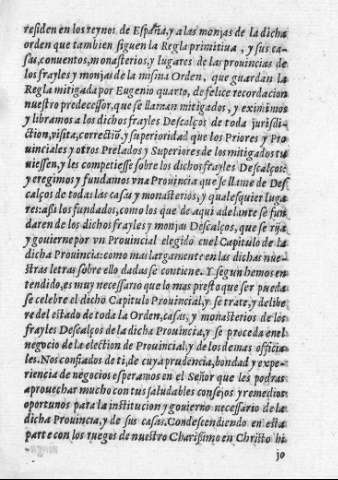 residen en los reynos de España, y a las monjas de la dicha
orden que tambien siguen la Regla primitiua, y sus ca-
sas, conuentos, monasterios, y lugares de las prouincias de
los frayles y monjas de la misma Orden, que guardan la
Regla mitigada por Eugenio quarto, de felice recordacion
nuestro predecessor, que se llaman mitigados, y eximimos
y libramos a los dichos frayles Descalços de toda jurisdi-
ction, visita, correctiõ, y superioridad que los Priores y Pro
uinciales y otros Prelados y Superiores de los mitigados tu
uiessen, y les competiesse sobre los dichos frayles Descalços:
y eregimos y fundamos vna Prouincia que se llame de Des
calços de todas las casas y monasterios, y qualesquier luga
res: assi los fundados, como los que de aqui adelante se fun
daren de los dichos frayles y monjas Descalços, que se rija
y gouierne por vn Prouincial elegido en el Capitulo de la
dicha Prouincia: como mas largamente en las dichas nue-
stras letras sobre ello dadas se contiene. Y segun hemos en
tendido, es muy necessario que lo mas presto que ser pueda
se celebre el dicho Capitulo Prouincial, y se trate, y delibe
re del estado de toda la Orden, casas, y monasterios de los
frayles Descalços de la dicha Prouincia, y se proceda en el
negocio de la election de Prouincial, y de los demas officia-
les. Nos confiados de ti, de cuya prudencia, bondad y expe-
riencia de negocios esperamos en el Señor que les podras
aprouechar mucho con tus saludables consejos y remedios
oportunos para la institucion y gouierno necessario de la
dicha Prouincia, y de sus casas. Condescendiendo en esta
parte con los ruegos de nuestro Charissimo en Christo hi
jo